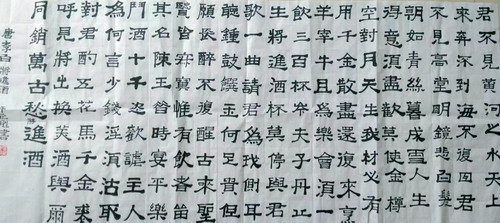 君不見黃河之水天上
來奔流到海不復回君
不見高堂明鏡悲白髮
朝如青絲暮成雪人生
得意須盡歡莫使金樽
空對月天生我材必有
用千金散盡還復來烹
羊宰牛且爲樂會須一
飲三百杯岑夫子丹丘
生將進酒杯莫停與君
歌一曲請君爲我側耳
聽鍾鼓饌玉何足貴但
願長醉不復醒古來聖
賢皆寂寞惟有飲者留
其名陳王昔時宴平樂
斗酒十千恣歡謔主人
為何言少錢徑須沽取
對君酌五花馬千金裘
呼兒將出換美酒與爾
同銷萬古愁進酒
唐李白將進酒